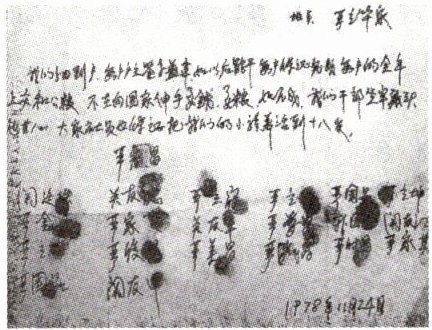 地点 严立华家
我们分田到户 每户户主签字盖章 如以后能干 每户保证完成每户的全年
上交和公粮 不在向国家伸手要钱要粮 如不成 我们干部坐牢杀头
也甘心 大家社员也保证把我们的小孩养活到十八岁
严 昌
关廷 关友 严立富 严立 严国昌 严立坤
严金 严家 关友章 严学昌 韩国 关友江
严立 严俊昌 严美昌 严 昌 严家其
严国 关友申
1978年11月24日